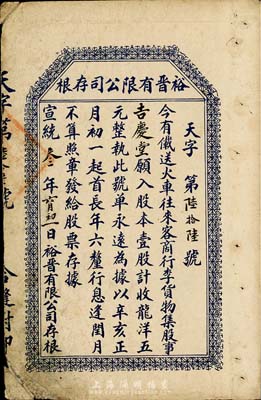 裕晋有限公司存根
天字 第陸拾陸號
今有儎送火車往来客商行李貨物集股事
吉慶堂願入股本壹股計收龍洋五
元整執此號单永遠為據以辛亥正
月初一起首長年六釐行息逢閏月
不算照章發給股票存據
宣統叁年 月初一日裕晋有限公司存根
天字第
上海泓盛拍卖